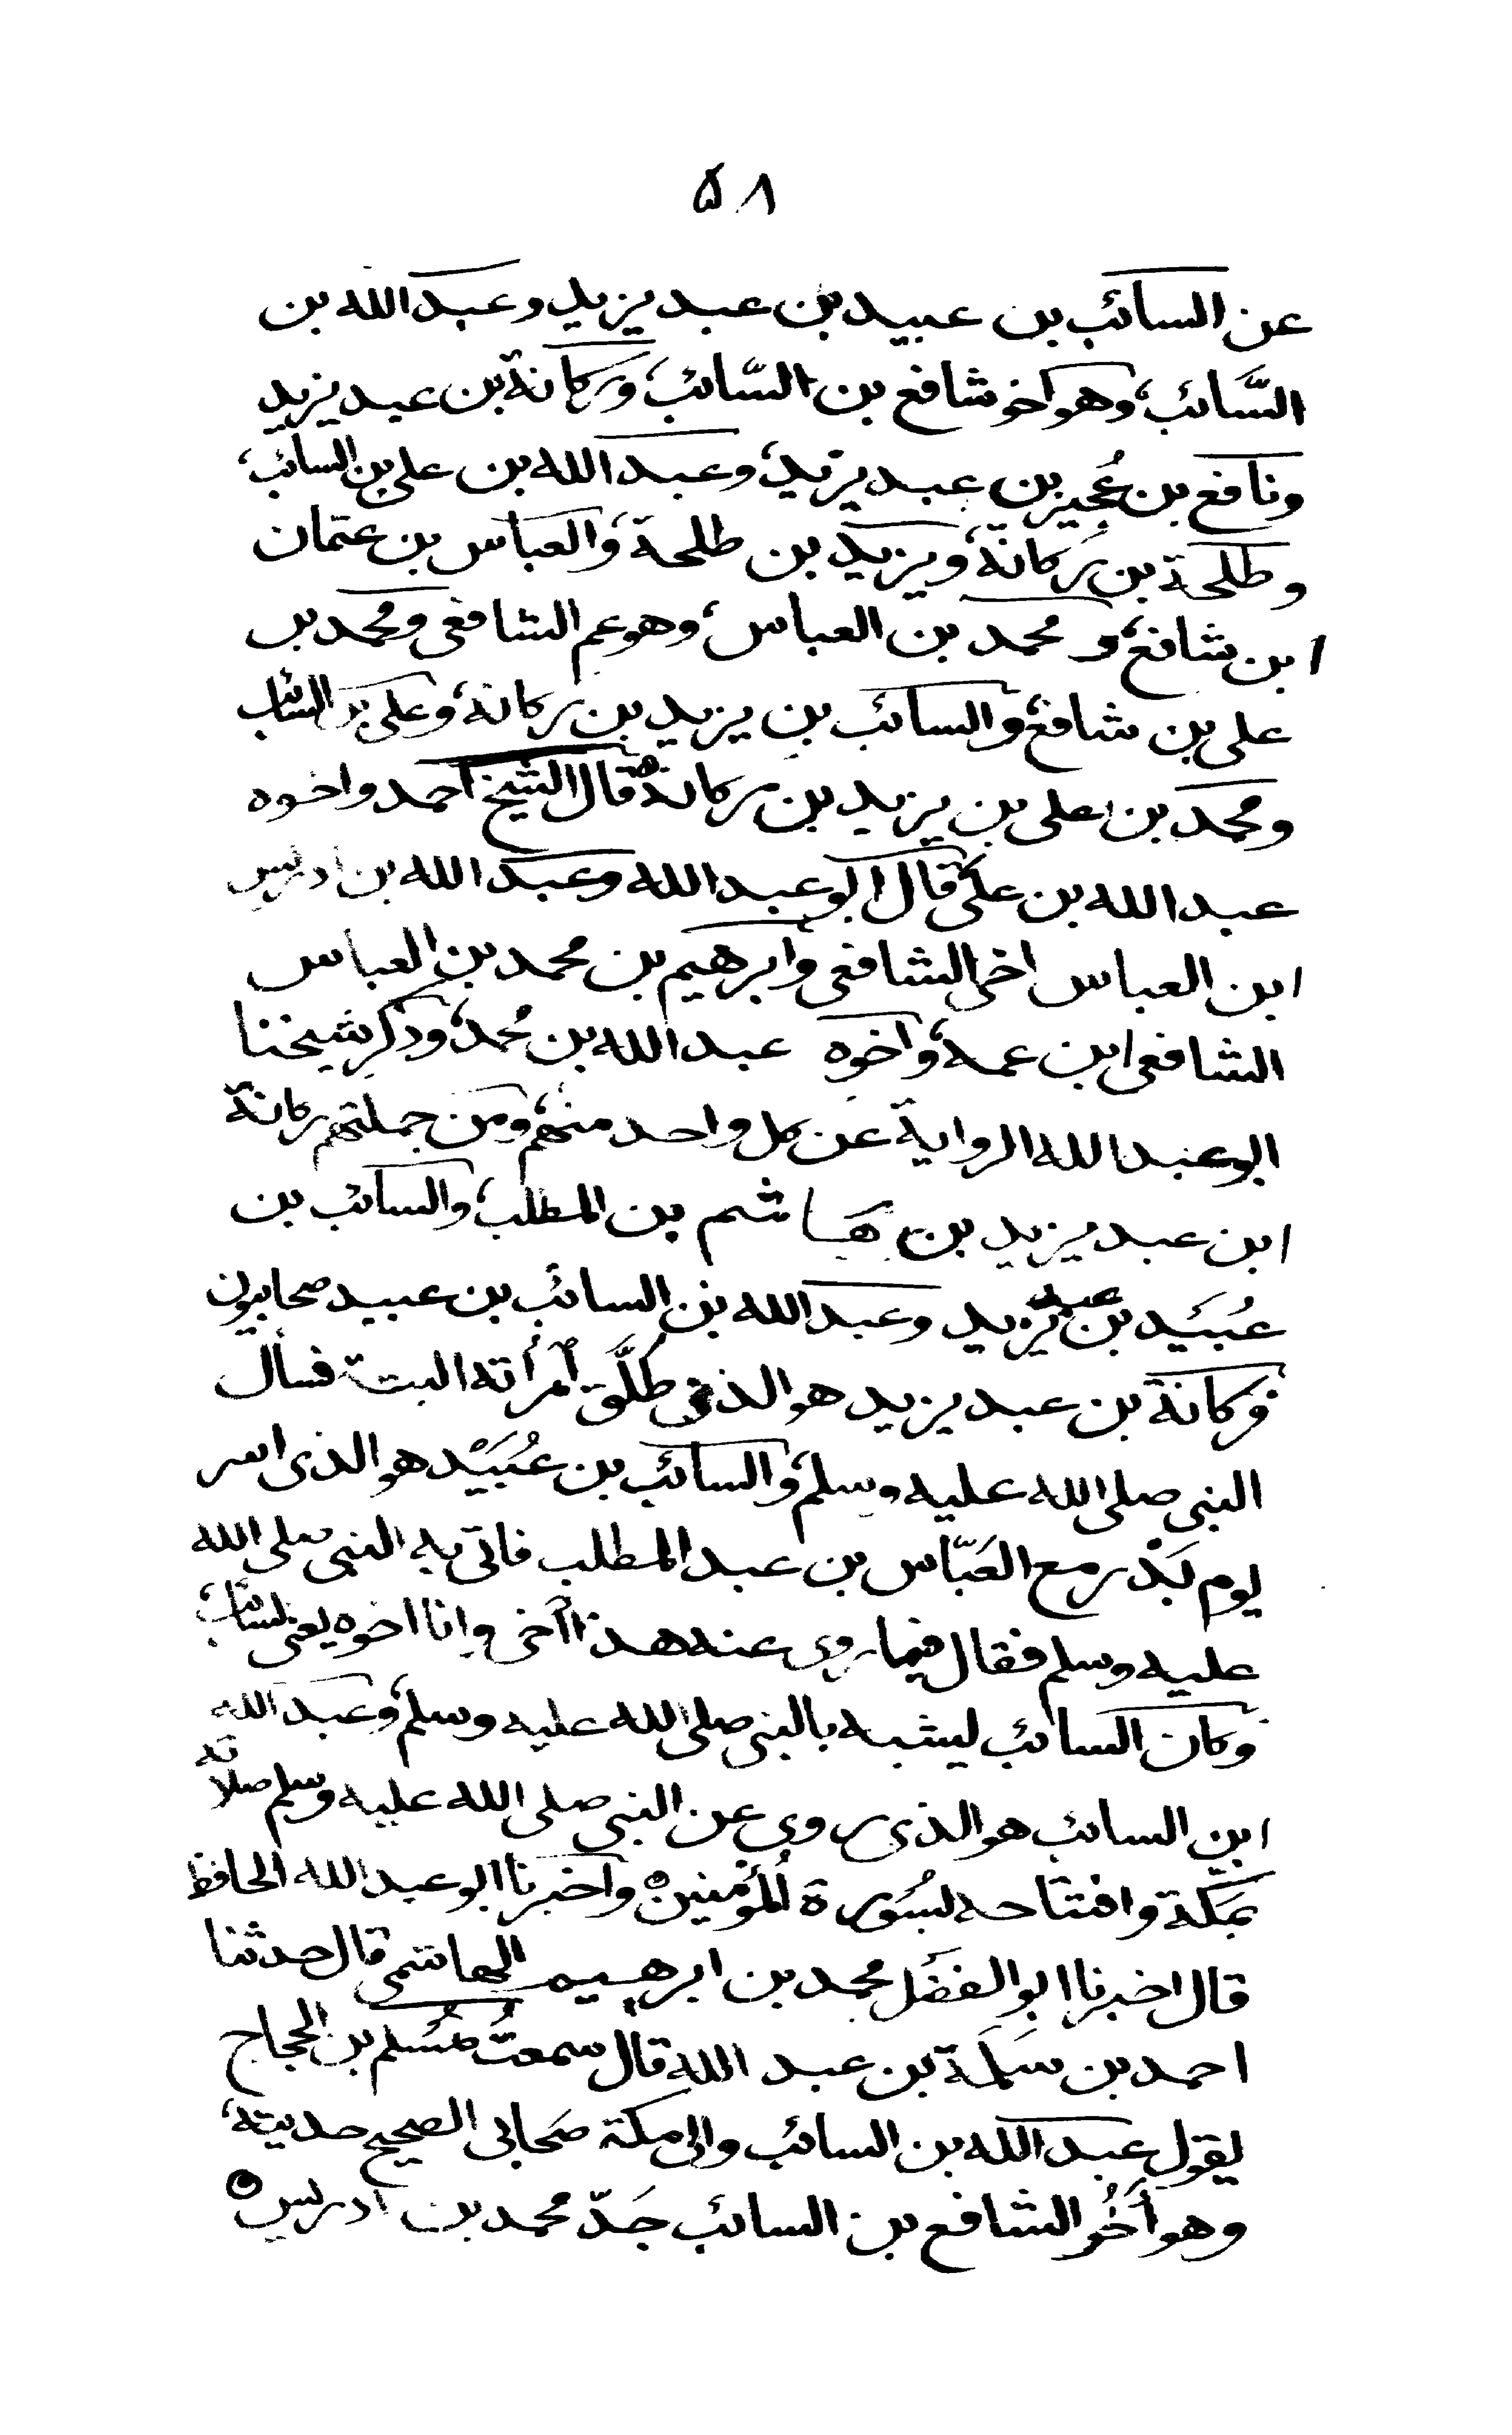 ۵۸
عن السائب بن عبيد بن عبد يزيد وعبد الله بن
السَّائب، وهو اخو شافع بن السّائب، وركانة بن عبد يزيد
ونافع بن عُجير بن عبد يزيد، وعبد الله بن على بن السائب،
وطلحة بن ركانة، ويزيد بن طلحة، والعباس بن عثمان
ابن شافع، ومحمد بن العباس، وهو عم الشافعى ومحمد بن
على بن شافع، والسائب بن يزيد بن ركانة، وعلى بن السائب
ومحمد بن على بن يزيد بن ركانة قال الشيخ احمد واخوه
عبد الله بن على قال ابو عبد الله وعبد الله بن ادريس
ابن العباس اخى الشافعى وابرهيم بن محمد بن العباس
الشافعى ابن عمه، واخوه عبد الله بن محمد، وذكر شيخنا
ابو عبد الله الرواية عن كل واحد منهم، ومن جملتهم ركانة
ابن عبد يزيد بن هاشم بن المطلب، والسائب بن
عُبَيد بن عبد يزيد وعبد الله بن السائب بن عبيد صحابيون
فركانة بن عبد يزيد هو الذى طلَّق امرأته البتة فسأل
النبى صلى الله عليه وسلم، والسائب بن عُبَيْد هو الذى اسر
يوم بَدْر مع العَبّاس بن عبد المطلب فاتى به النبى صلى الله
عليه وسلم فقال فيما روى عنه هذا أخى وانا اخوه يعنى السائب،
وكان السائب يشبه بالنبى صلى الله عليه وسلم، وعبد الله
ابن السائب هو الذى روى عن النبى صلى الله عليه وسلم صلاته
بمكّة وافتتاحه بسُورة المُؤمنين ٥ واخبرنا ابو عبد الله الحافظ
قال اخبرنا ابو الفضل محمد بن ابرهيم الهاشمى قال حدثنا
احمد بن سَلَمة بن عبد الله قال سمعتُ مُسْلم بن الحجاج
يقول عبد الله بن السائب والى مكة صَحابى الصحيح حديثه،
وهو أَخُو الشافع بن السائب جَدّ محمد بن ادريس ٥